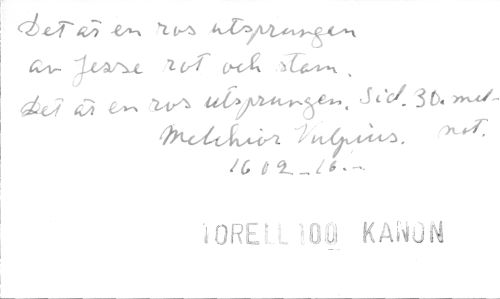 Det är en ros utsprungen
av Jesse rot och stam.
Det är en ros utsprungen. Sid. 30. mel-
Melchior Vulpius. not.
1609-16.-
TORELL 100 KANON